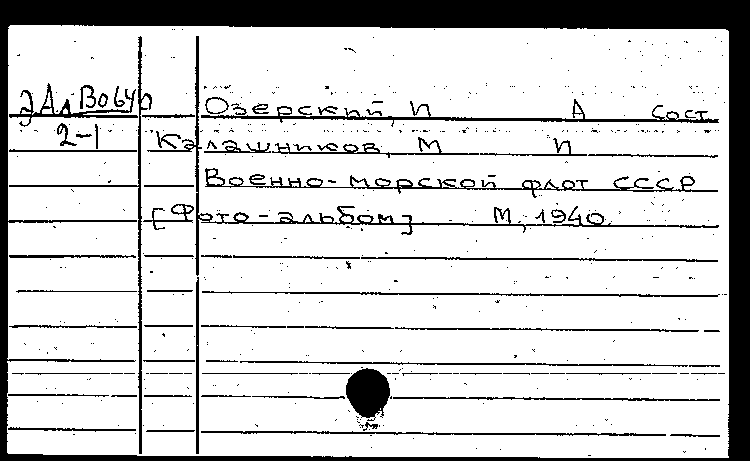 ЭАл Во640 Озерский, П А сост
2-1 Калашников, М П
Военно-морской флот СССР
[Фото-альбом] М, 1940